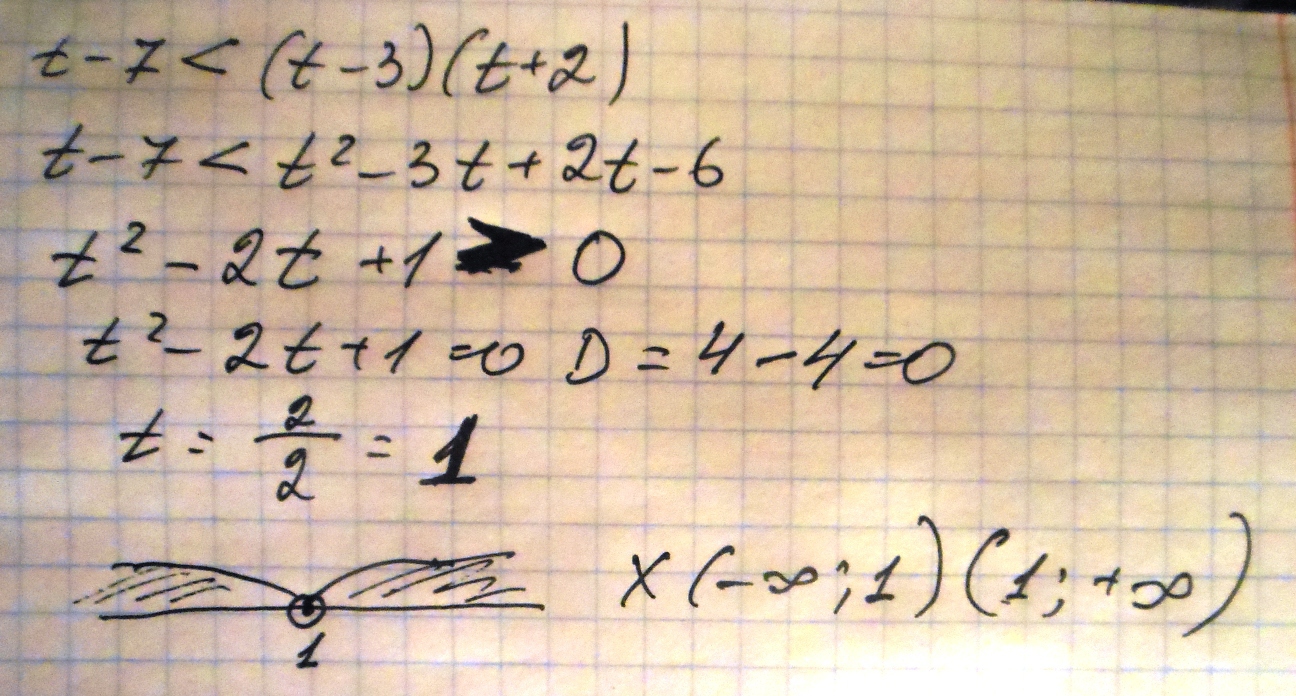 t-7 < (t-3)(t+2)
t-7 < t²-3t+2t-6
t²-2t+1 > 0
t²-2t+1=0 D=4-4=0
t = 2/2 = 1
1
x(-∞;1)(1;+∞)